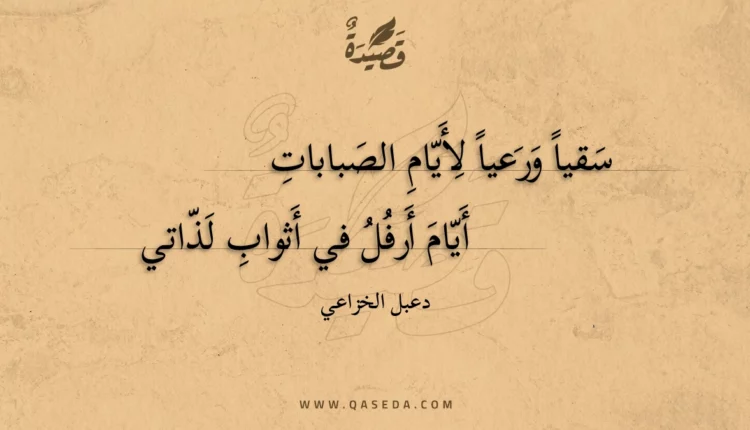 قَصِيدَةٌ
سَقياً وَرَعياً لِأَيّامِ الصَبَاباتِ
أَيّامَ أَرفُلُ في أَثوابِ لَذّاتي
دعبل الخزاعي
WWW.QASEDA.COM